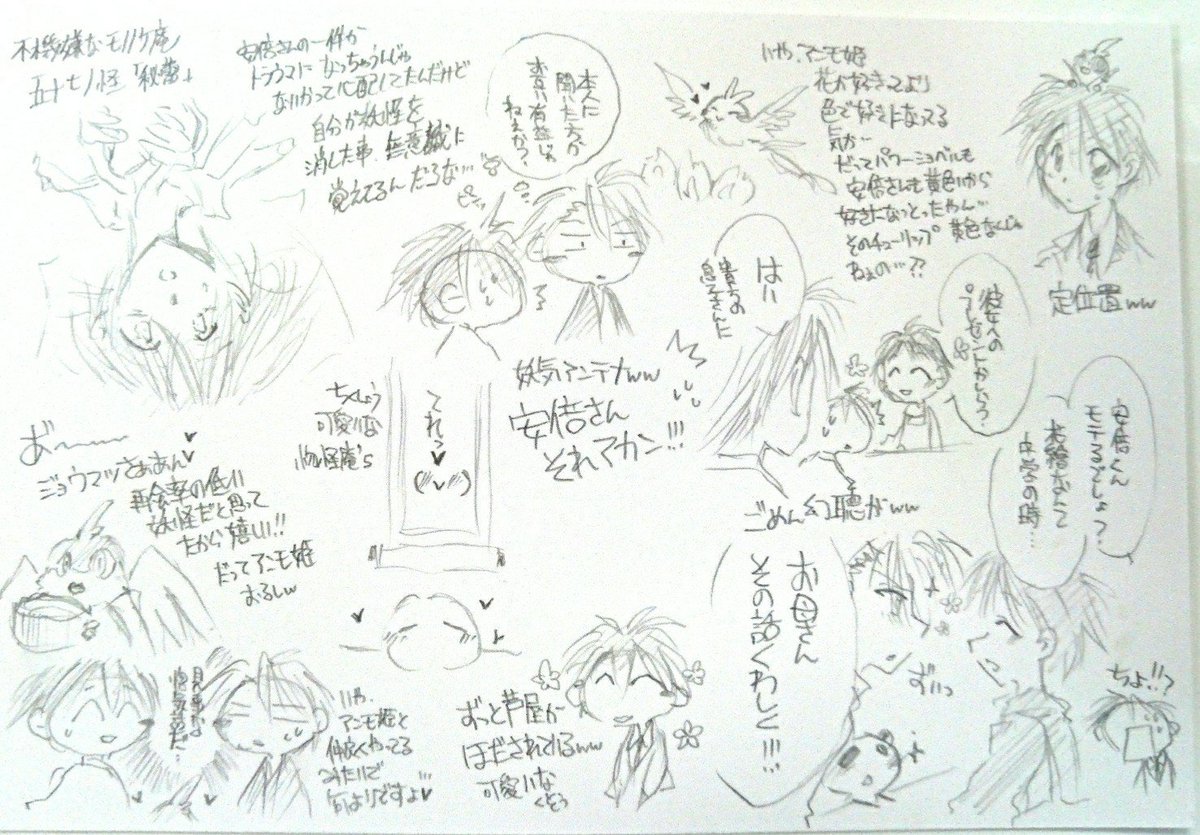 不機嫌なモノノケ庵
五十七ノ怪「秘密」
安倍さんの一件が
トラウマになっちゃうんじゃ
ないかって心配してたんだけど
自分が妖怪を
消した事、無意識に
覚えてるんだろな…
本人に
聞いた方が
ねぇか?
いや、アンモ姫
花が好きってより
色で好きになってる
気が…
だってパワーショベルも
安倍さんも黄色いから
好きになっとったやん…
そのチューリップ黄色なくじゃ
ねぇの…??
定位置ww
はい
貴方の
息子さんに
彼女への
プレゼントかしら?
妖気アンテナww
安倍さん
それアカン!!!
ごめん幻聴がww
安倍くん
モテるでしょ?
花繪なんて
中学の時…
お母さん
その話くわしく!!!
ずいっ
ちょ!!?
ちくしょう
可愛いな
物怪庵's
てれっ♥
あ〜
ジョウマツさぁあん♥
再会率の低い
妖怪だと思って
たから嬉しい!!
だってアンモ姫
おるしw
見事な
いや、
アンモ姫と
仲良くやってる
みたいで
何よりですよ♥
ずっと芦屋が
ほだされているww
可愛いな
くそぅ